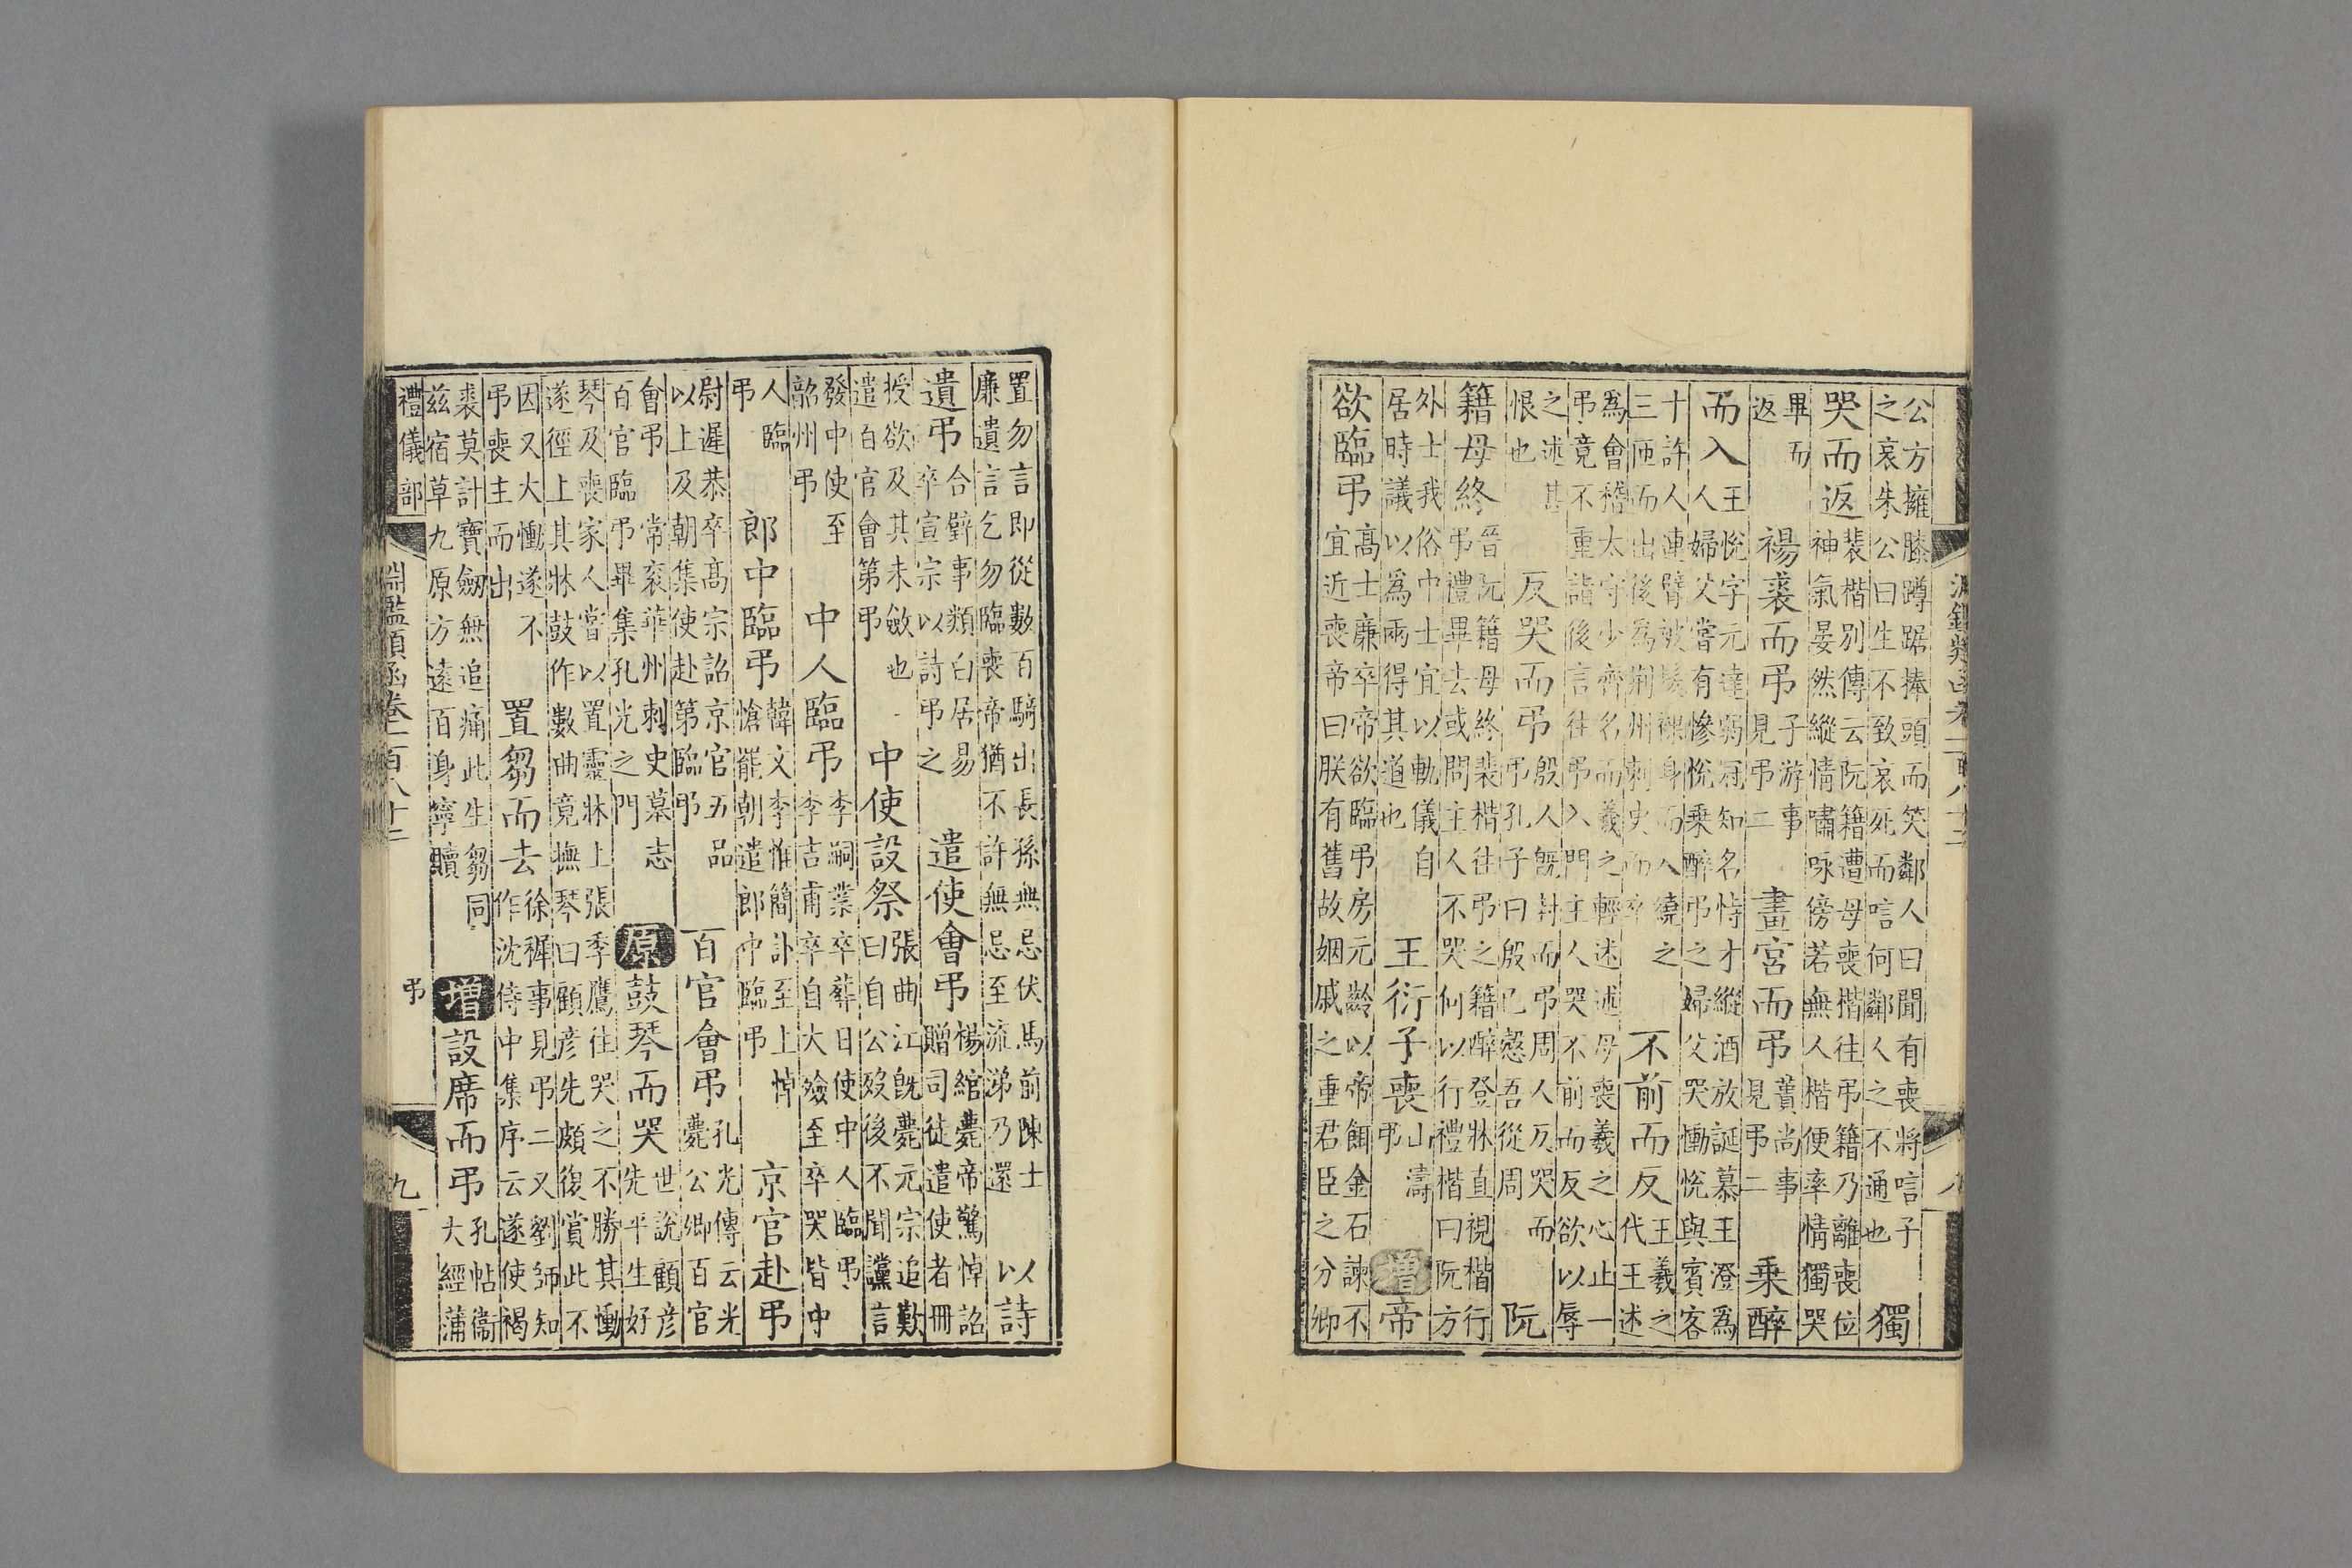 公方擁膝蹲踞捧頭而笑鄰人曰聞有喪將唁子
之哀朱公曰生不致哀死而唁何鄰人之不通也
獨
哭而返
裴楷別傳云阮籍遭母喪楷往弔籍乃離喪位
神氣晏然縱情嘯咏傍若無人楷便率情獨哭
畢而
返
裼裘而弔
子游事
見弔二
畫宮而弔
蕢尚事
見弔二
乘醉
而入
王悅字元達弱冠知名恃才縱酒放誕慕王澄為
人婦父嘗有慘悅乘醉弔之婦父哭慟悅與賓客
十許人連臂被髮裸身而人繞之
三匝而出後為荊州刺史而卒
不前而反
王羲之
代王述
為會稽太守少齊名而羲之輕述述母喪羲之心止一
弔竟不重詣後言往弔入門主人哭不前而反欲以辱
之述甚
恨也
反哭而弔
殷人既封而弔周人反哭而
弔孔子曰殷已愨吾從周
阮
籍母終
晉阮籍母終裴楷往弔之籍醉登牀直視楷行
弔禮畢去或問主人不哭何以行禮楷曰阮方
外士我俗中士宜以軌儀自
居時議以為兩得其道也
王衍子喪
山濤
弔
增
帝
欲臨弔
高士廉卒帝欲臨弔房元齡以帝餌金石諫不
宜近喪帝曰朕有舊故姻戚之重君臣之分卿
置勿言即從數百騎出長孫無忌伏馬前陳士
廉遺言乞勿臨喪帝猶不許無忌至流涕乃還
以詩
遺弔
合璧事類白居易
卒宣宗以詩弔之
遣使會弔
楊綰薨帝驚悼詔
贈司徒遣使者冊
授欲及其未斂也
遣百官會第弔
中使設祭
張曲江既薨元宗追歎
曰自公歿後不聞讜言
發中使至
韶州弔
中人臨弔
李嗣業卒葬日使中人臨弔
李吉甫卒自大殮至卒哭皆中
人臨
弔
郎中臨弔
韓文李惟簡訃至上悼
愴罷朝遣郎中臨弔
京官赴弔
尉遲恭卒高宗詔京官五品
以上及朝集使赴第臨弔
百官會弔
孔光傳云光
薨公卿百官
會弔常袞華州刺史墓志
百官臨弔畢集孔光之門
原
鼓琴而哭
世說顧彦
先平生好
琴及喪家人嘗以置靈牀上張季鷹往哭之不勝其慟
遂徑上其牀鼓作數曲竟撫琴曰顧彦先頗復賞此不
因又大慟遂不
弔喪主而出
置芻而去
徐穉事見弔二又劉師知
作沈侍中集序云遂使褐
裘莫計寶劒無追痛此生芻同
兹宿草九原方遠百身寧贖
增
設席而弔
孔帖衞
大經蒲
禮儀部
淵鑑類函卷一百八十二
弔
九